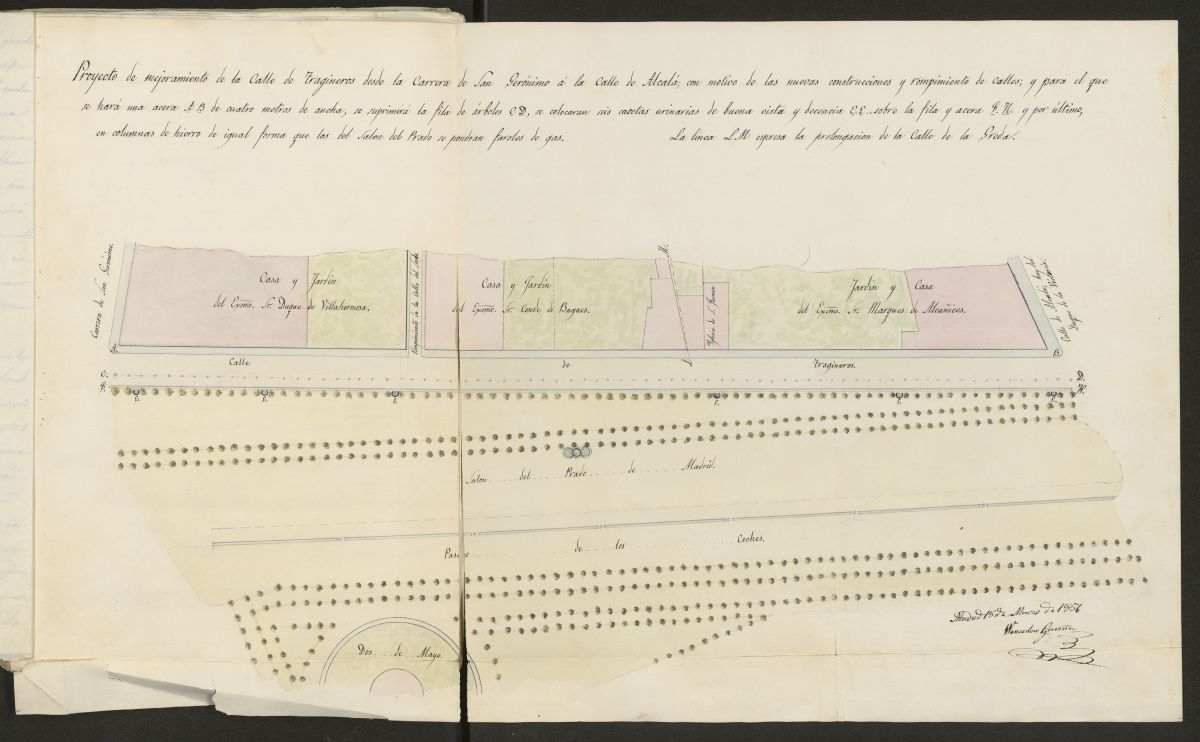 Proyecto de mejoramiento de la Calle de Tragineros desde la Carrera de San Gerónimo á la Calle de Alcalá; con motivo de las nuevas construcciones y rompimiento de calles; y para el que
se hará una acera A.B de cuatro metros de ancha, se suprimirá la fila de árboles C.D, se colocaran seis casetas urinarias de buena vista y decencia E.E. sobre la fila y acera F.H. y por último,
en columnas de hierro de igual forma que las del Salon del Prado se pondran faroles de gas.
La línea L.M espresa la prolongacion de la Calle de la Greda.
Carrera de San Gerónimo.
Casa y Jardin
del Excmo. Sr. Duque de Villahermosa.
Rompimiento de la Calle del Sordo.
Casa y Jardin
del Excmo. Sr. Conde de Bagaes.
M.
Yglesia de S. Fermin.
Jardin y Casa
del Excmo. Sr. Marques de Alcañices.
Calle de Alcalá, hoy del
Duque de la Victoria.
A.
B.
Calle de Tragineros.
L.
C.
D.
F.
H.
E.
E.
E.
E.
E.
E.
Salon del Prado de Madrid.
Paseo de los Coches.
Dos de Mayo.
Madrid 18 de Marzo de 1856
Wenceslao Gaviña